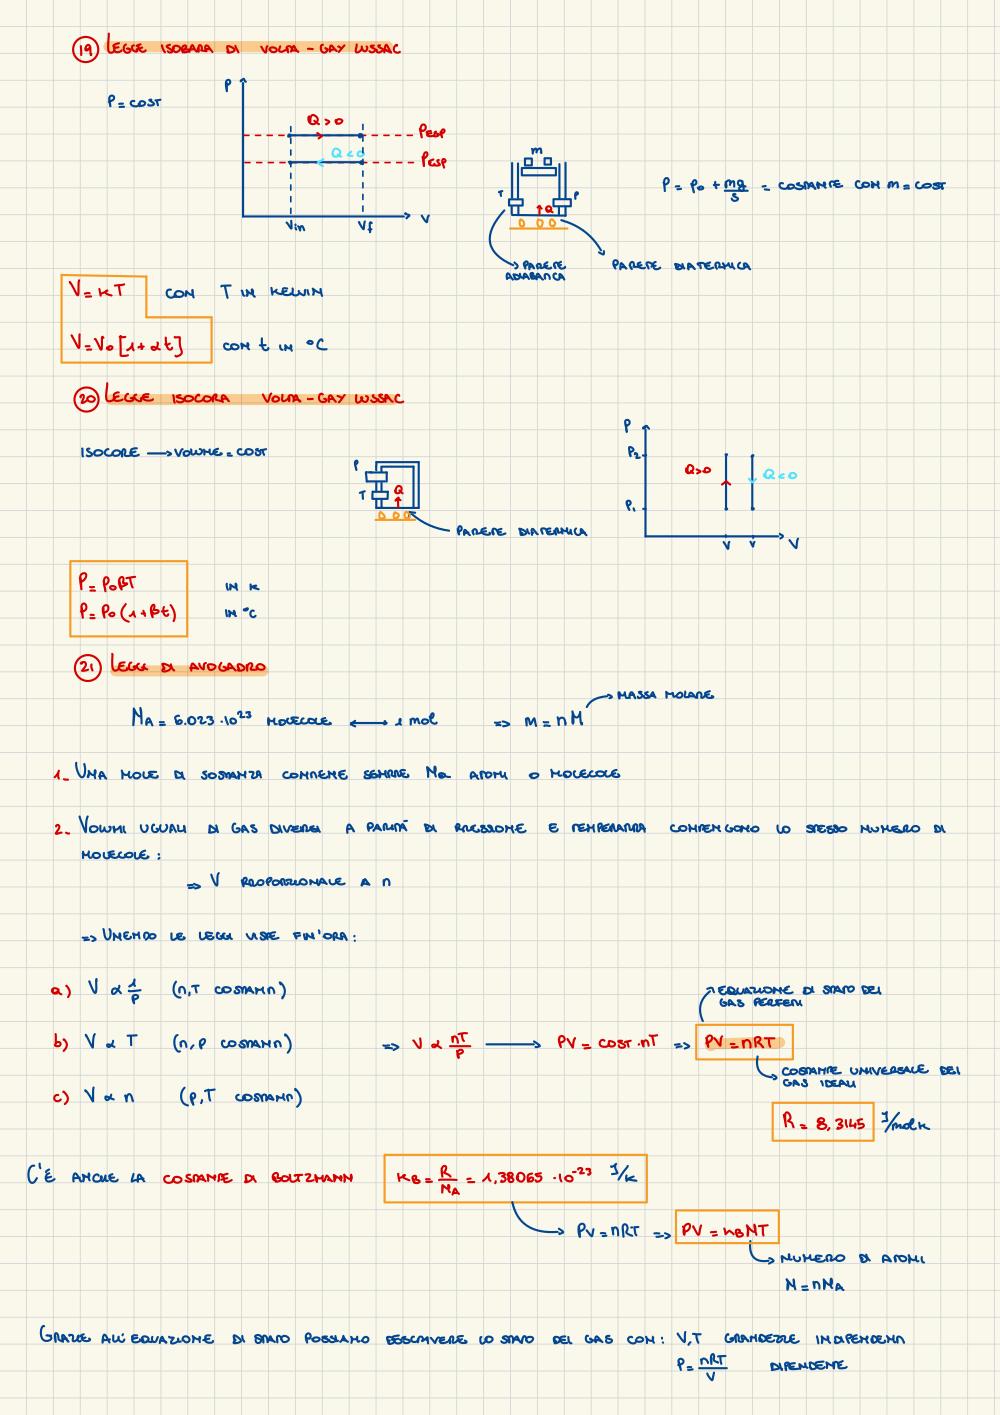 19 LEGGE ISOBARA DI VOLTA - GAY LUSSAC
P = COST
P
Q > 0
Q < 0
PESP
PESP
Vin
Vf
V
m
T
P
Q
PARETE ADIABATICA
PARETE DIATERMICA
P = P0 + mg/S = COSTANTE CON m = COST
V = KT CON T IN KELVIN
V = V0 [1 + αt] CON t IN °C
20 LEGGE ISOCORA VOLTA - GAY LUSSAC
ISOCORE → VOLUME = COST
P
T
Q
PARETE DIATERMICA
P
P2
P1
Q>0
Q<0
V
V
V
P = P0βT IN K
P = P0 (1+βt) IN °C
21 LEGGI DI AVOGADRO
NA = 6.023 · 10²³ MOLECOLE ⟷ 1 mol ⇒ m = nM
MASSA MOLARE
1. UNA MOLE DI SOSTANZA CONTIENE SEMPRE Na ATOMI O MOLECOLE
2. VOLUMI UGUALI DI GAS DIVERSI A PARITÀ DI PRESSIONE E TEMPERATURA CONTENGONO LO STESSO NUMERO DI
MOLECOLE :
⇒ V PROPORZIONALE A n
⇒ UNENDO LE LEGGI VISTE FIN'ORA :
a) V α 1/P (n,T COSTANTI)
b) V α T (n,P COSTANTI) ⇒ V α nT/P → PV = COST · nT ⇒ PV = nRT
EQUAZIONE DI STATO DEI
GAS PERFETTI
COSTANTE UNIVERSALE DEI
GAS IDEALI
c) V α n (P,T COSTANTI)
R = 8,3145 J/mol K
C'È ANCHE LA COSTANTE DI BOLTZMANN KB = R/NA = 1,38065 · 10⁻²³ J/K
PV = nRT ⇒ PV = KBNT
NUMERO DI ATOMI
N = nNA
GRAZIE ALL'EQUAZIONE DI STATO POSSIAMO DESCRIVERE LO STATO DEL GAS CON : V,T GRANDEZZE INDIPENDENTI
P = nRT/V DIPENDENTE